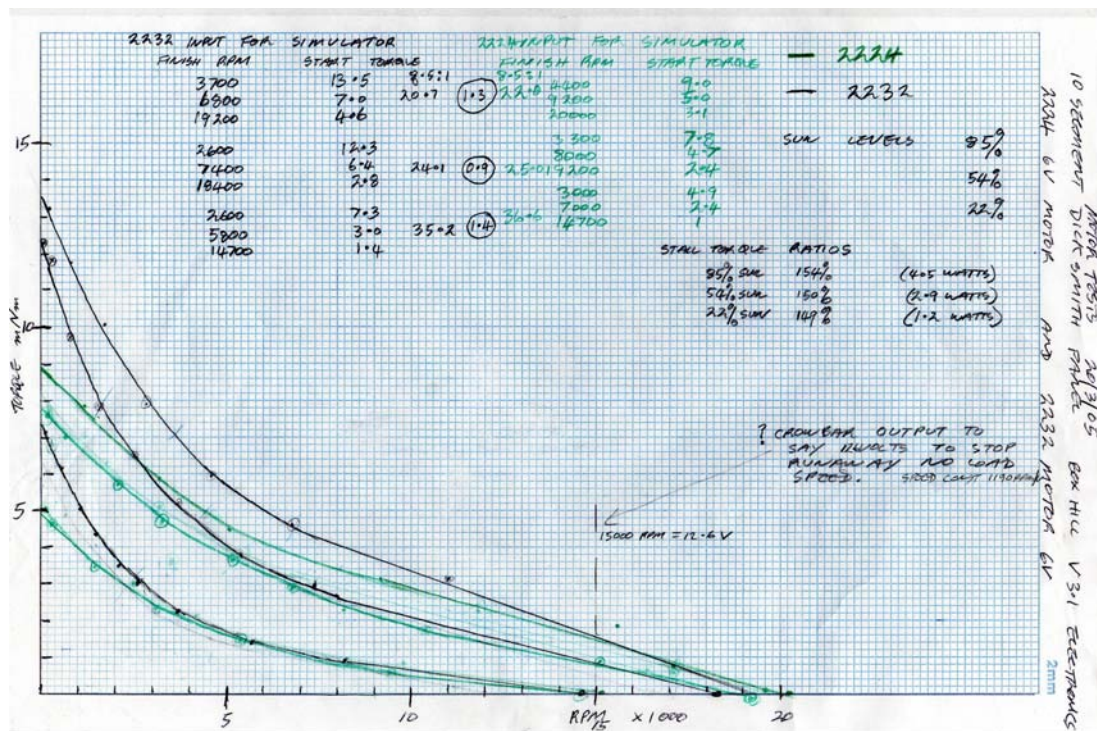 2232 INPUT FOR SIMULATOR
FINISH RPM START TORQUE
3700 13.5 8.5:1
6800 7.0 20.7 1.3
19200 4.6
2600 12.3
7400 6.4 24.1 0.9
18400 2.8
2600 7.3
5800 3.0 35.2 1.4
14700 1.4
2224 INPUT FOR SIMULATOR
FINISH RPM START TORQUE
8.5:1
22.0 4400 9.0
9200 5.0
20000 3.1
3300 7.8
8000 4.7
25.0 19200 2.4
3000 4.9
7000 2.4
36.6 14700 1
2224
2232
SUN LEVELS 85%
54%
22%
STALL TORQUE RATIOS
85% SUN 154% (4.5 WATTS)
54% SUN 150% (2.9 WATTS)
22% SUN 149% (1.2 WATTS)
? CROWBAR OUTPUT TO
SAY 12VOLTS TO STOP
RUNAWAY NO LOAD
SPEED. SPEED CONST 1190RPM/V
15000 RPM = 12.6 V
TORQUE mNm
15
10
5
5
10
15
20
RPM x1000
2mm
MOTOR TESTS 20/3/05
10 SEGMENT DICK SMITH PANEL BOX HILL V3.1 ELECTRONICS
2224 6V MOTOR AND 2232 MOTOR 6V